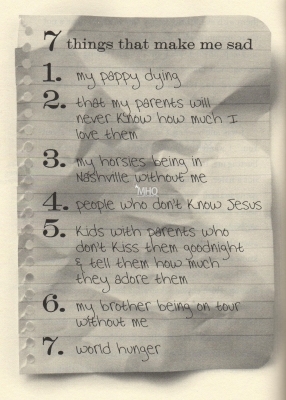 7 things that make me sad
1. my pappy dying
2. that my parents will
never know how much I
love them
3. my horsies being in
Nashville without me
MHO
4. people who don't know Jesus
5. Kids with parents who
don't kiss them goodnight
& tell them how much
they adore them
6. my brother being on tour
without me
7. world hunger